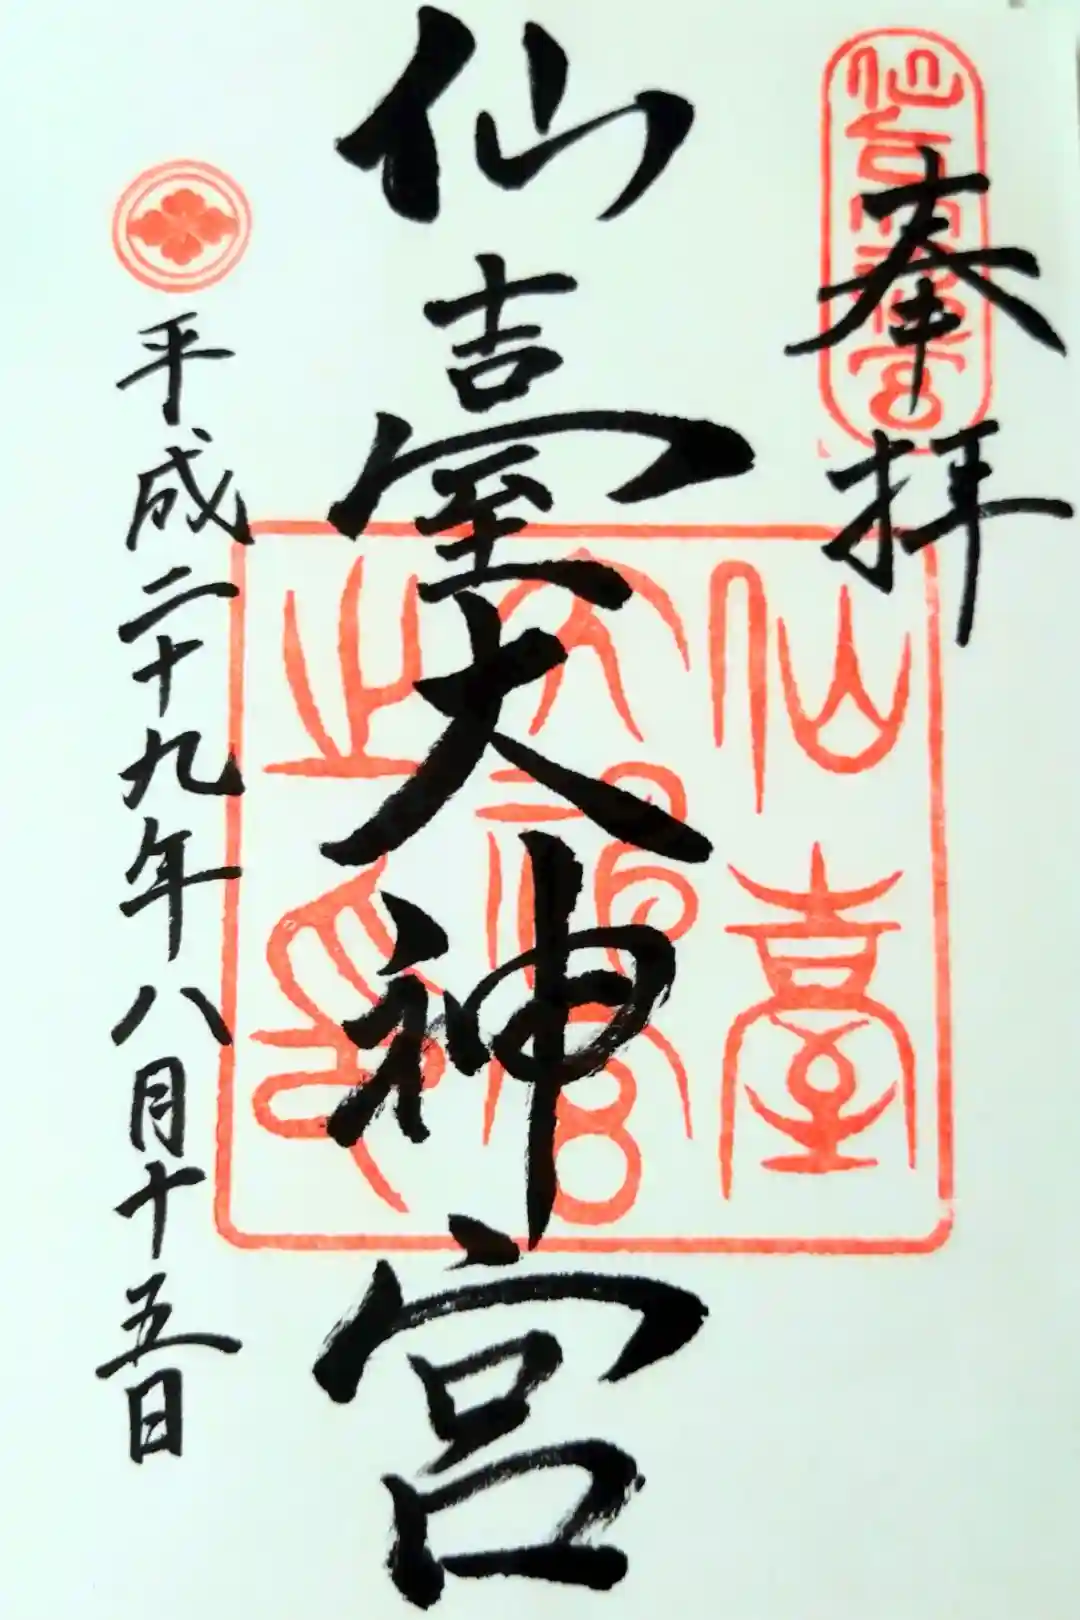 奉拝
仙臺大神宮
平成二十九年八月十五日
仙臺
大神宮
之印